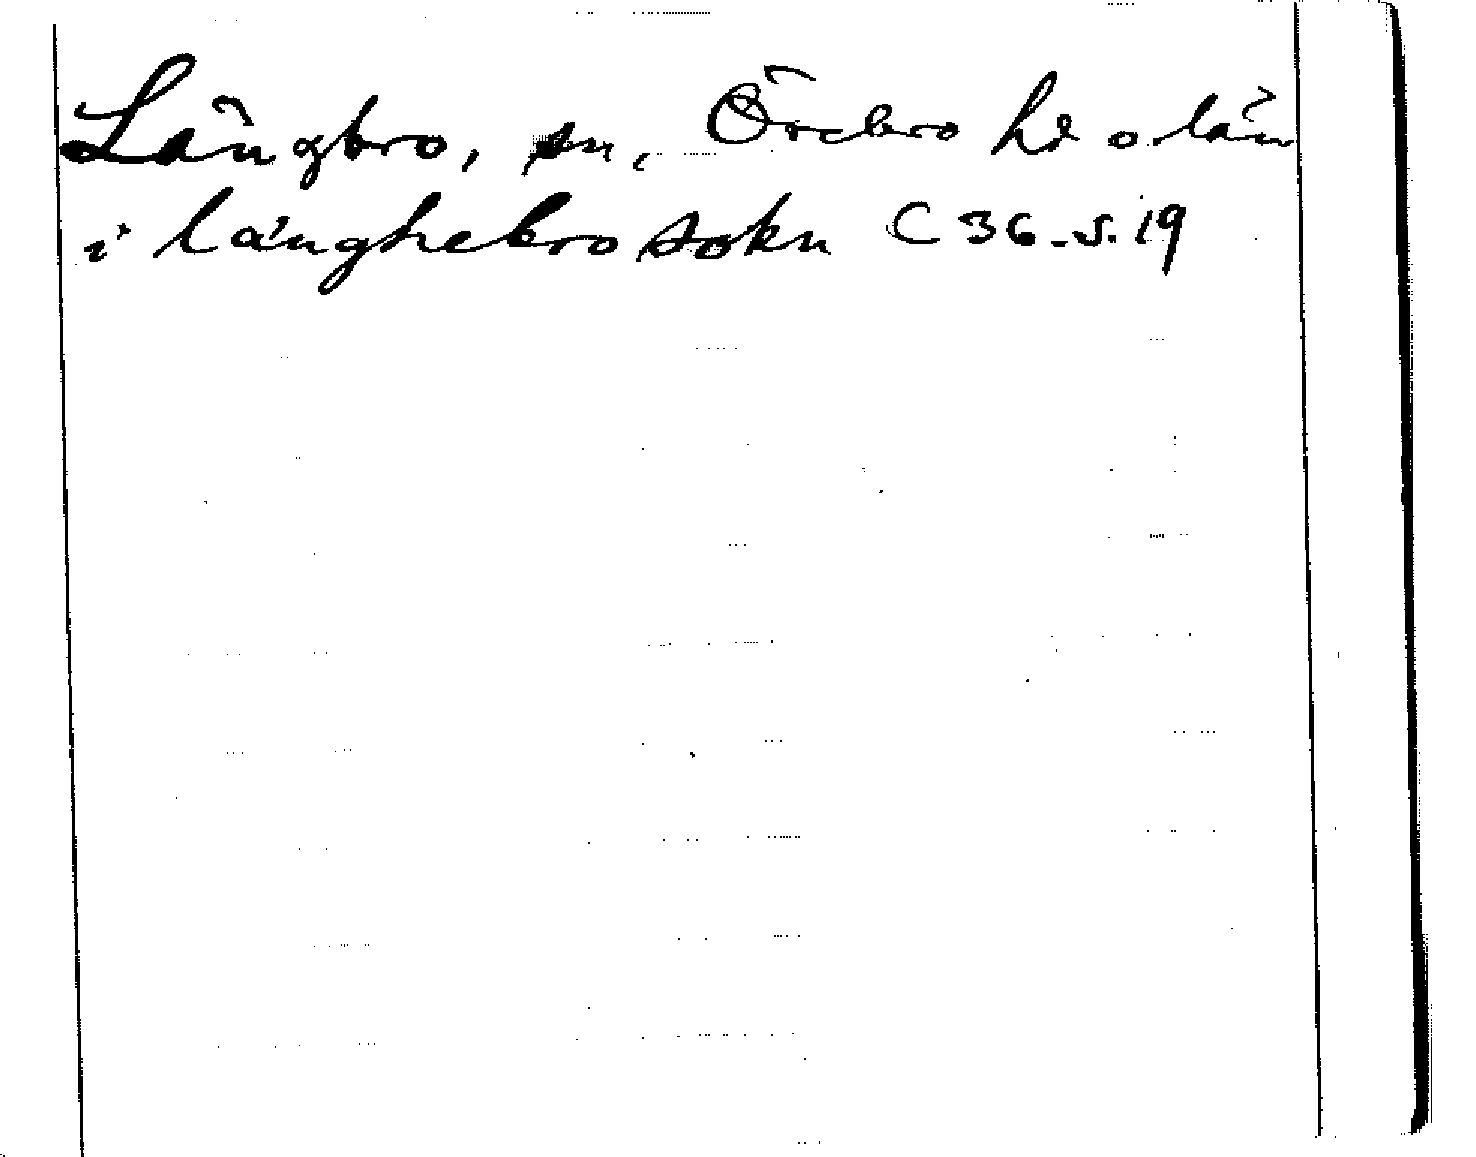 Långbro, sn, Örebro hd o län
i langhebro sokn C 36 - s. 19